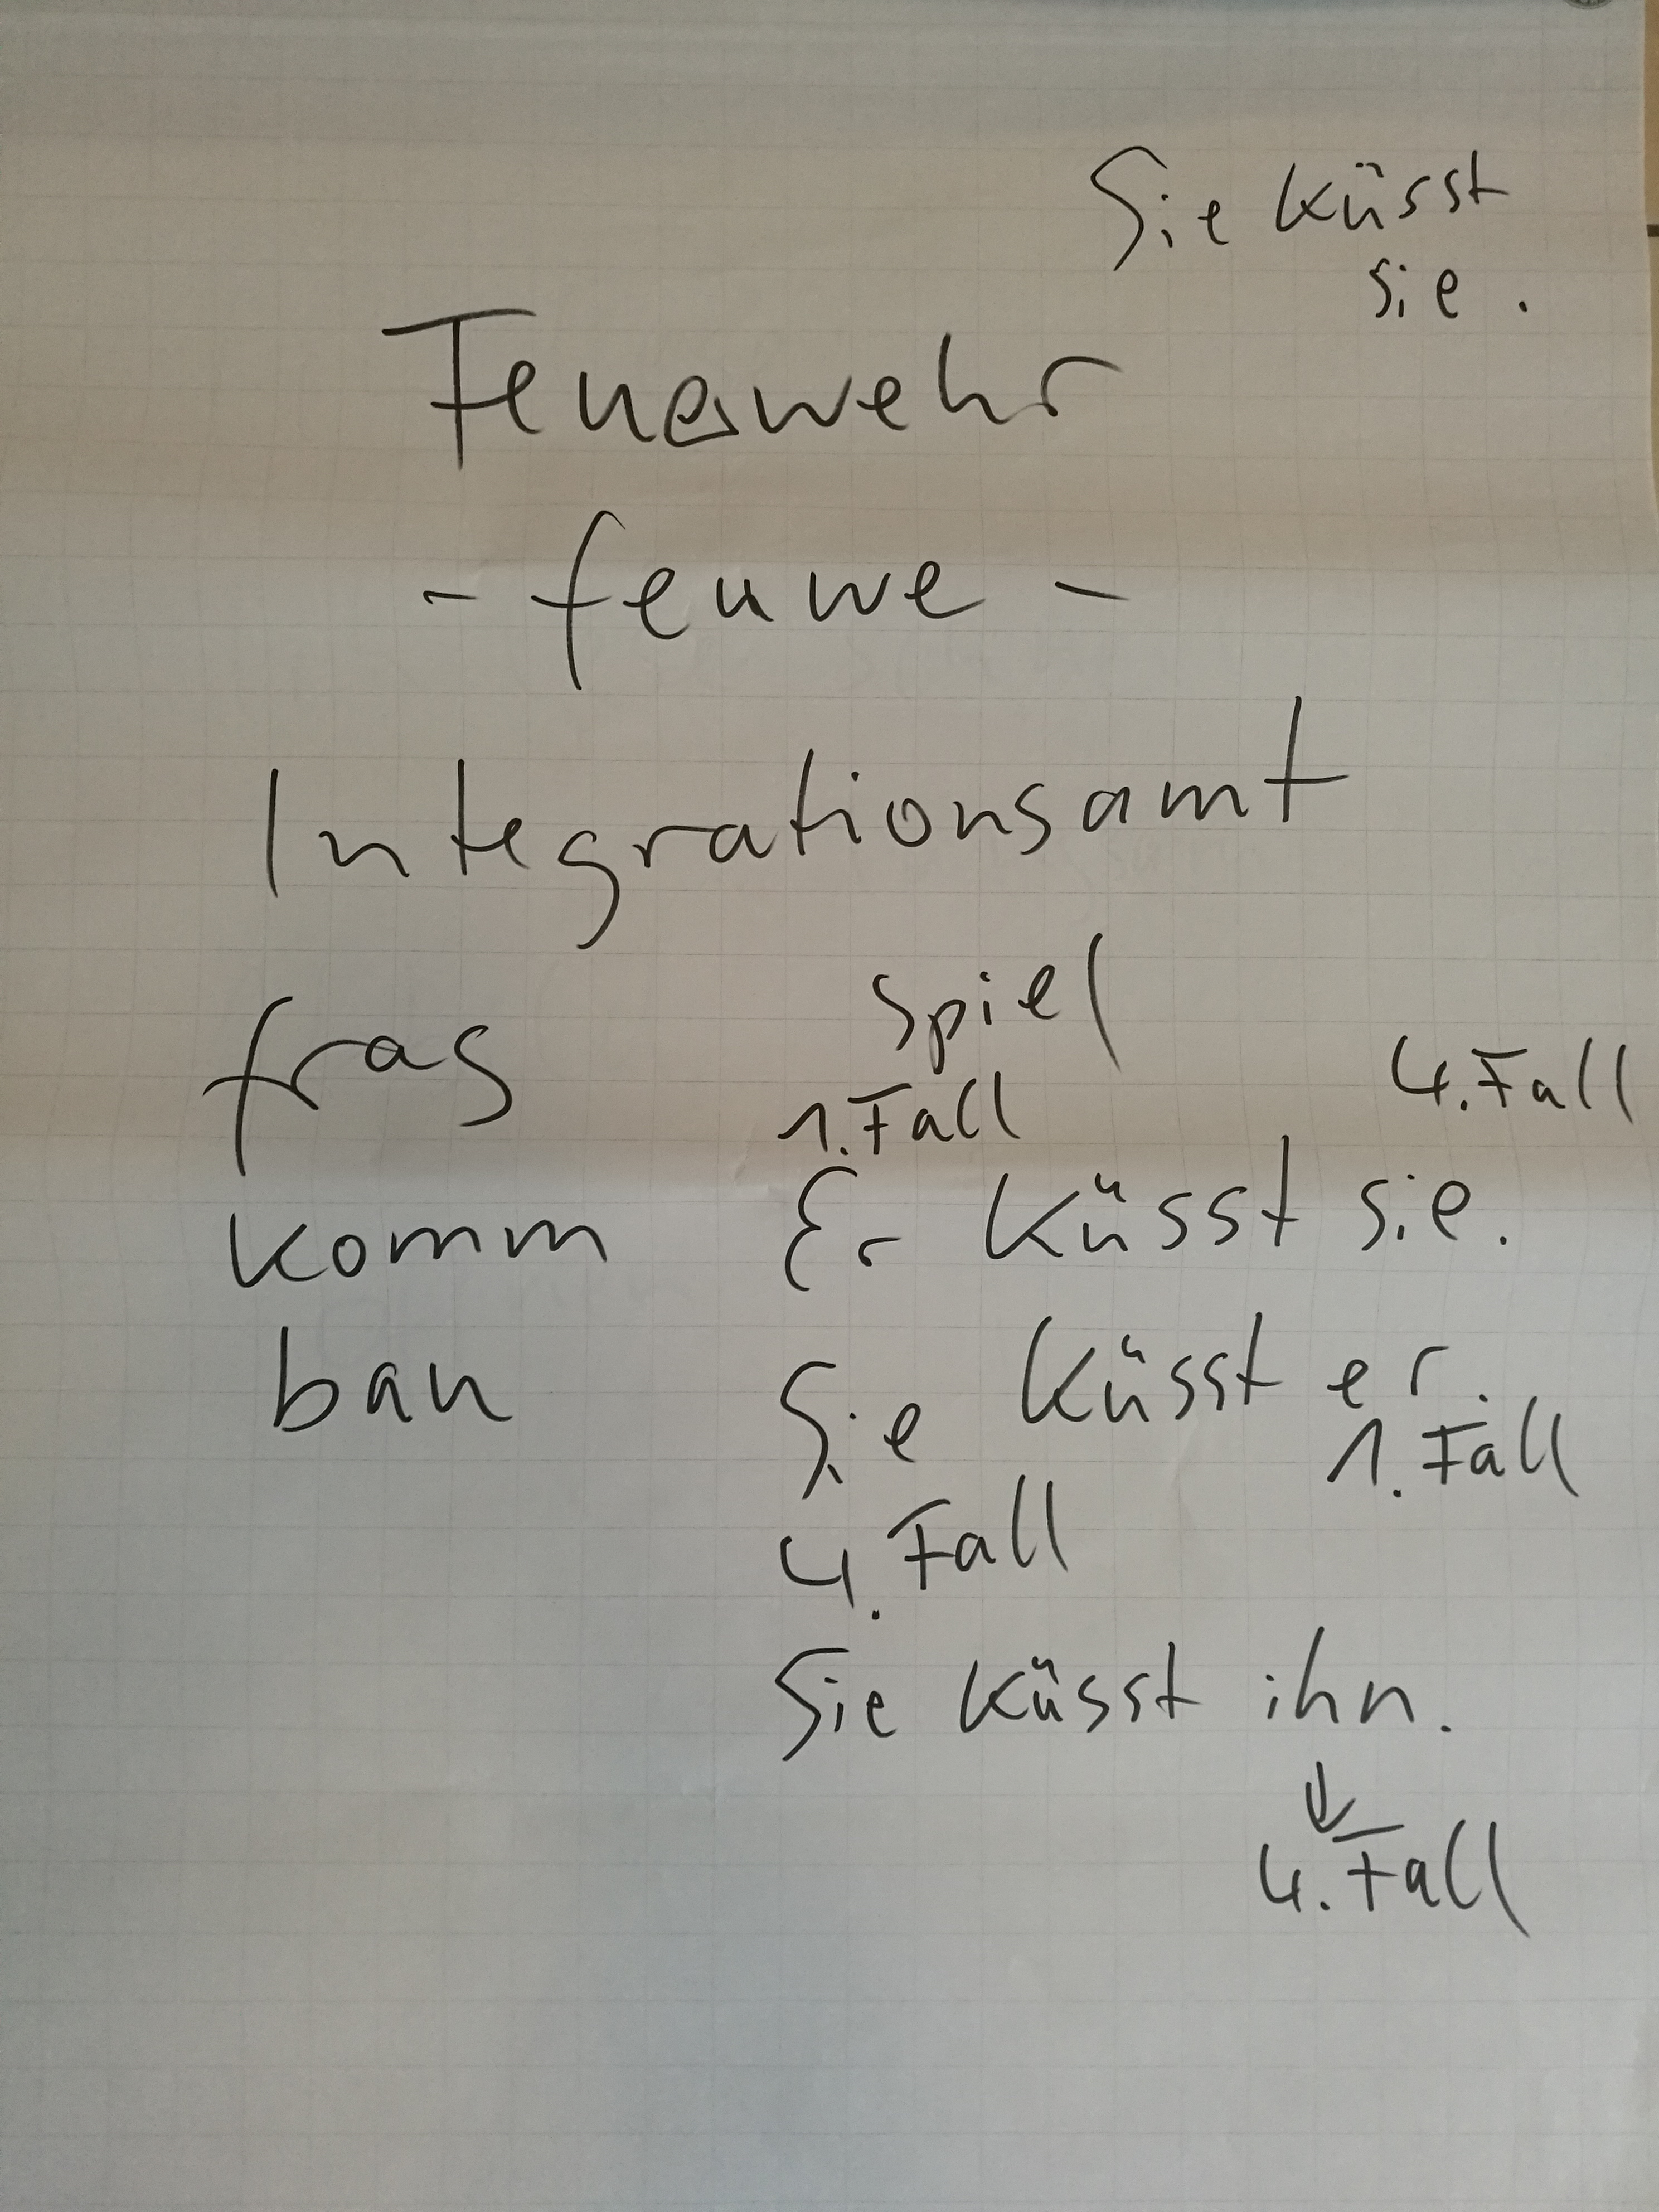 Sie küsst
sie.
Feuerwehr
- feuwe -
Integrationsamt
frag
Spiel
1. Fall
4. Fall
komm
Er küsst sie.
bau
Sie küsst er.
1. Fall
4. Fall
Sie küsst ihn.
4. Fall